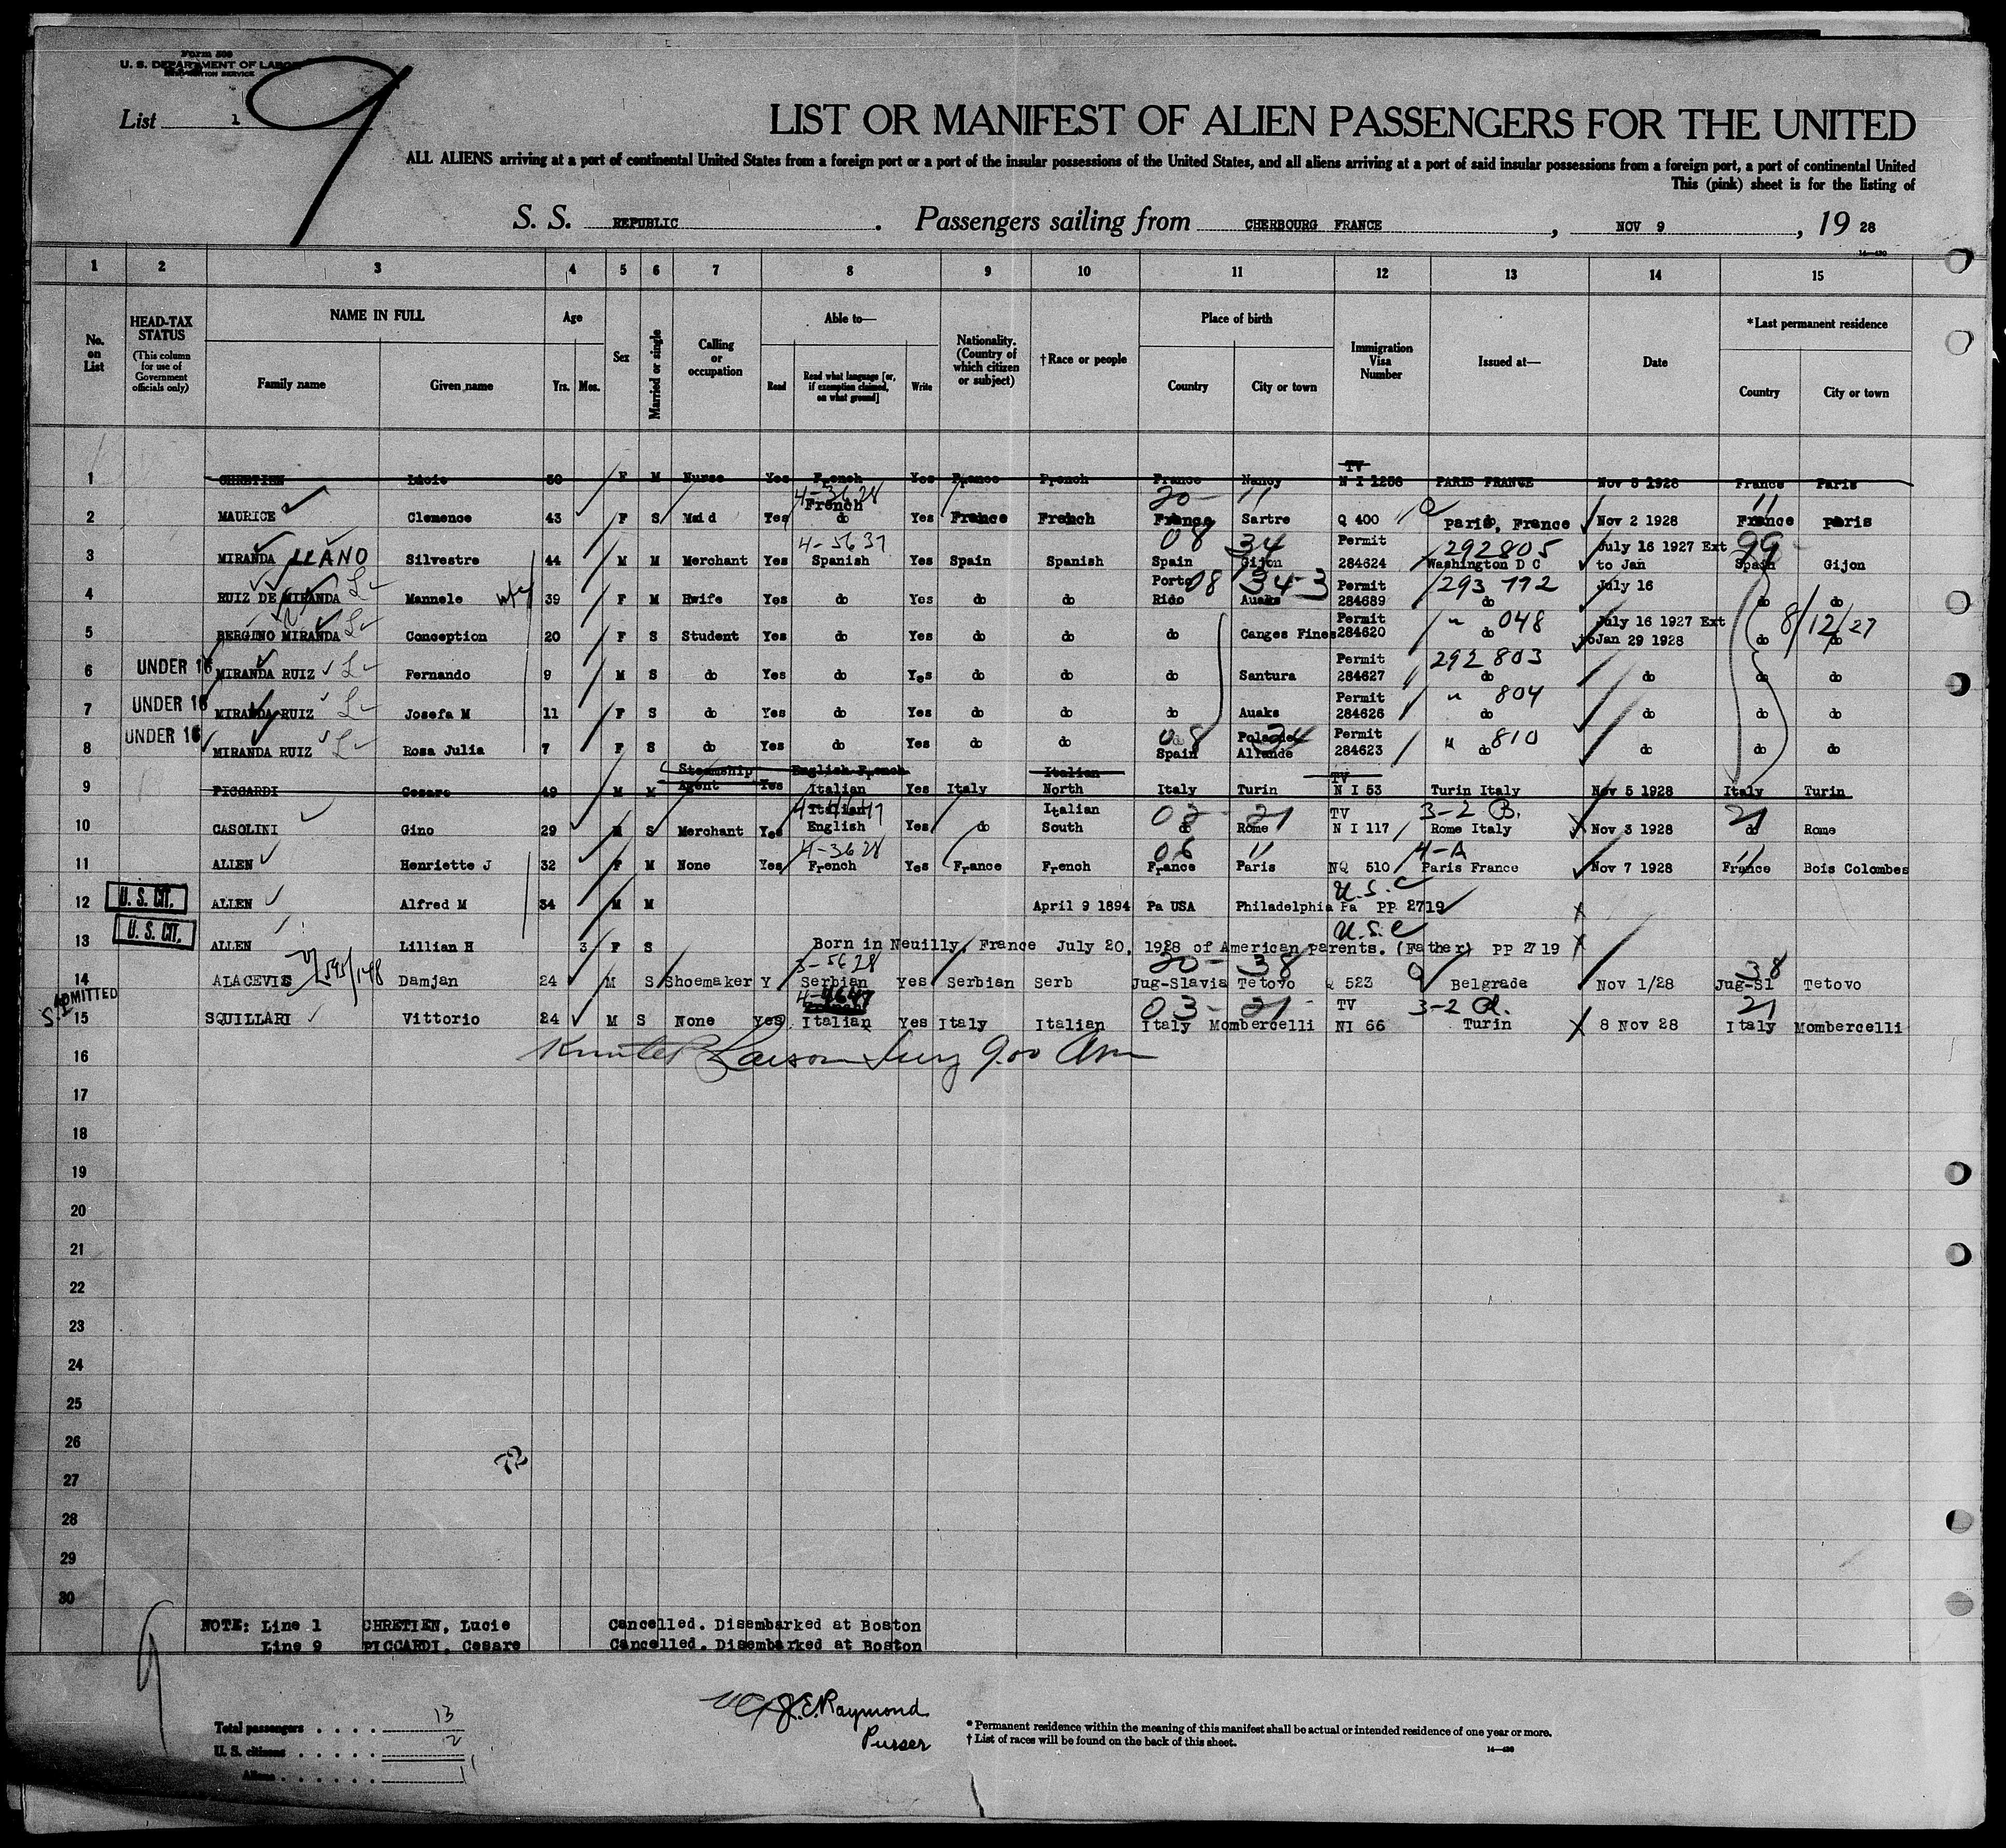 Form 500
U. S. DEPARTMENT OF LABOR
IMMIGRATION SERVICE
9
List 1
LIST OR MANIFEST OF ALIEN PASSENGERS FOR THE UNITED
ALL ALIENS arriving at a port of continental United States from a foreign port or a port of the insular possessions of the United States, and all aliens arriving at a port of said insular possessions from a foreign port, a port of continental United
This (pink) sheet is for the listing of
S. S. REPUBLIC . Passengers sailing from CHERBOURG FRANCE , NOV 9 , 19 28
1 2 3 4 5 6 7 8 9 10 11 12 13 14 15
No. on List
HEAD-TAX STATUS (This column for use of Government officials only)
NAME IN FULL Family name Given name
Age Yrs. Mos.
Sex
Married or single
Calling or occupation
Able to— Read Read what language [or, if exemption claimed, on what ground] Write
Nationality. (Country of which citizen or subject)
†Race or people
Place of birth Country City or town
Immigration Visa Number
Issued at—
Date
*Last permanent residence Country City or town
TV
1 CHRETIEN Lucie 30 F M Nurse Yes French Yes France French France Nancy N I 1256 PARIS FRANCE Nov 5 1928 France Paris
4-3628 20- 11 11
French
2 MAURICE Clemence 43 F S Maid Yes do Yes France French France Sartre Q 400 Paris, France Nov 2 1928 France Paris
4-5637 08 34 Permit 292805 July 16 1927 Ext 99
3 MIRANDA LLANO Silvestre 44 M M Merchant Yes Spanish Yes Spain Spanish Spain Gijon 284624 Washington D C to Jan Spain Gijon
Porto 08 34-3 Permit 293 772 July 16
4 RUIZ DE MIRANDA Mannele wf 39 F M Hwife Yes do Yes do do Rido Auaks 284689 do do do
Permit " 048 July 16 1927 Ext 8/12/27
5 BERGINO MIRANDA Conception 20 F S Student Yes do Yes do do do Canges Fines 284620 do to Jan 29 1928 do do
Permit 292 803
6 UNDER 16 MIRANDA RUIZ Fernando 9 M S do Yes do Yes do do do Santura 284627 do do do do
Permit " 804
7 UNDER 16 MIRANDA RUIZ Josefa M 11 F S do Yes do Yes do do do Auaks 284626 do do do do
08 34 Permit " 810
8 UNDER 16 MIRANDA RUIZ Rosa Julia 7 F S do Yes do Yes do do Spain Allande 284623 do do do do
Steamship English French Italian TV
9 PICCARDI Cesare 49 M M Agent Yes Italian Yes Italy North Italy Turin N I 53 Turin Italy Nov 5 1928 Italy Turin
Italian Italian 03 21 TV 3-2 B. 21
10 CASOLINI Gino 29 M S Merchant Yes English Yes do South do Rome N I 117 Rome Italy Nov 3 1928 do Rome
4-3628 06 11 4-A 11
11 ALLEN Henriette J 32 F M None Yes French Yes France French France Paris NQ 510 Paris France Nov 7 1928 France Bois Colombes
U.S.C
12 U. S. CIT. ALLEN Alfred M 34 M M April 9 1894 Pa USA Philadelphia Pa PP 2719
U.S.C
13 U. S. CIT. ALLEN Lillian H 3 F S Born in Neuilly, France July 20, 1928 of American parents. (Father) PP 2719
3-5628 20- 38 Q 38
14 ALACEVIS Damjan 24 M S Shoemaker Y Serbian Yes Serbian Serb Jug-Slavia Tetovo Q 523 Belgrade Nov 1/28 Jug-Sl Tetovo
S.I. ADMITTED 4-4647 03- 21 TV 3-2 A. 21
15 SQUILLARI Vittorio 24 M S None Yes Italian Yes Italy Italian Italy Mombercelli NI 66 Turin 8 Nov 28 Italy Mombercelli
16 Larson 9.00 Am
17
18
19
20
21
22
23
24
25
26
27
28
29
30
NOTE: Line 1 CHRETIEN, Lucie Cancelled. Disembarked at Boston
Line 9 PICCARDI, Cesare Cancelled. Disembarked at Boston
Total passengers . . . . 13
U. S. citizens . . . . . 2
Aliens . . . . . . 11
J.E. Raymond
Purser
* Permanent residence within the meaning of this manifest shall be actual or intended residence of one year or more.
† List of races will be found on the back of this sheet.
14—430